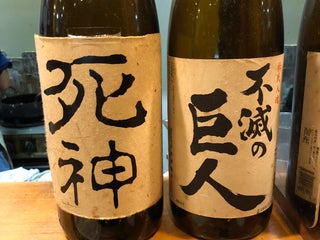 死神
不滅の
巨人